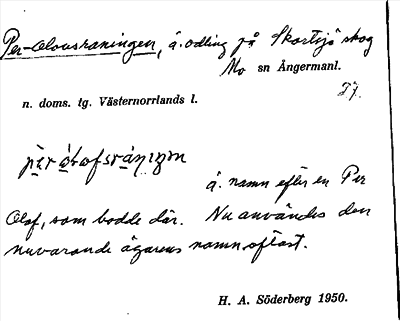 Per-Olovsraningen, å. odling på Skortsjö skog
Mo sn Ångermanl.
n. doms. tg. Västernorrlands l. 27.
å. namn efter en Per
Olof, som bodde där. Nu användes den
nuvarande ägarens namn oftast.
H. A. Söderberg 1950.